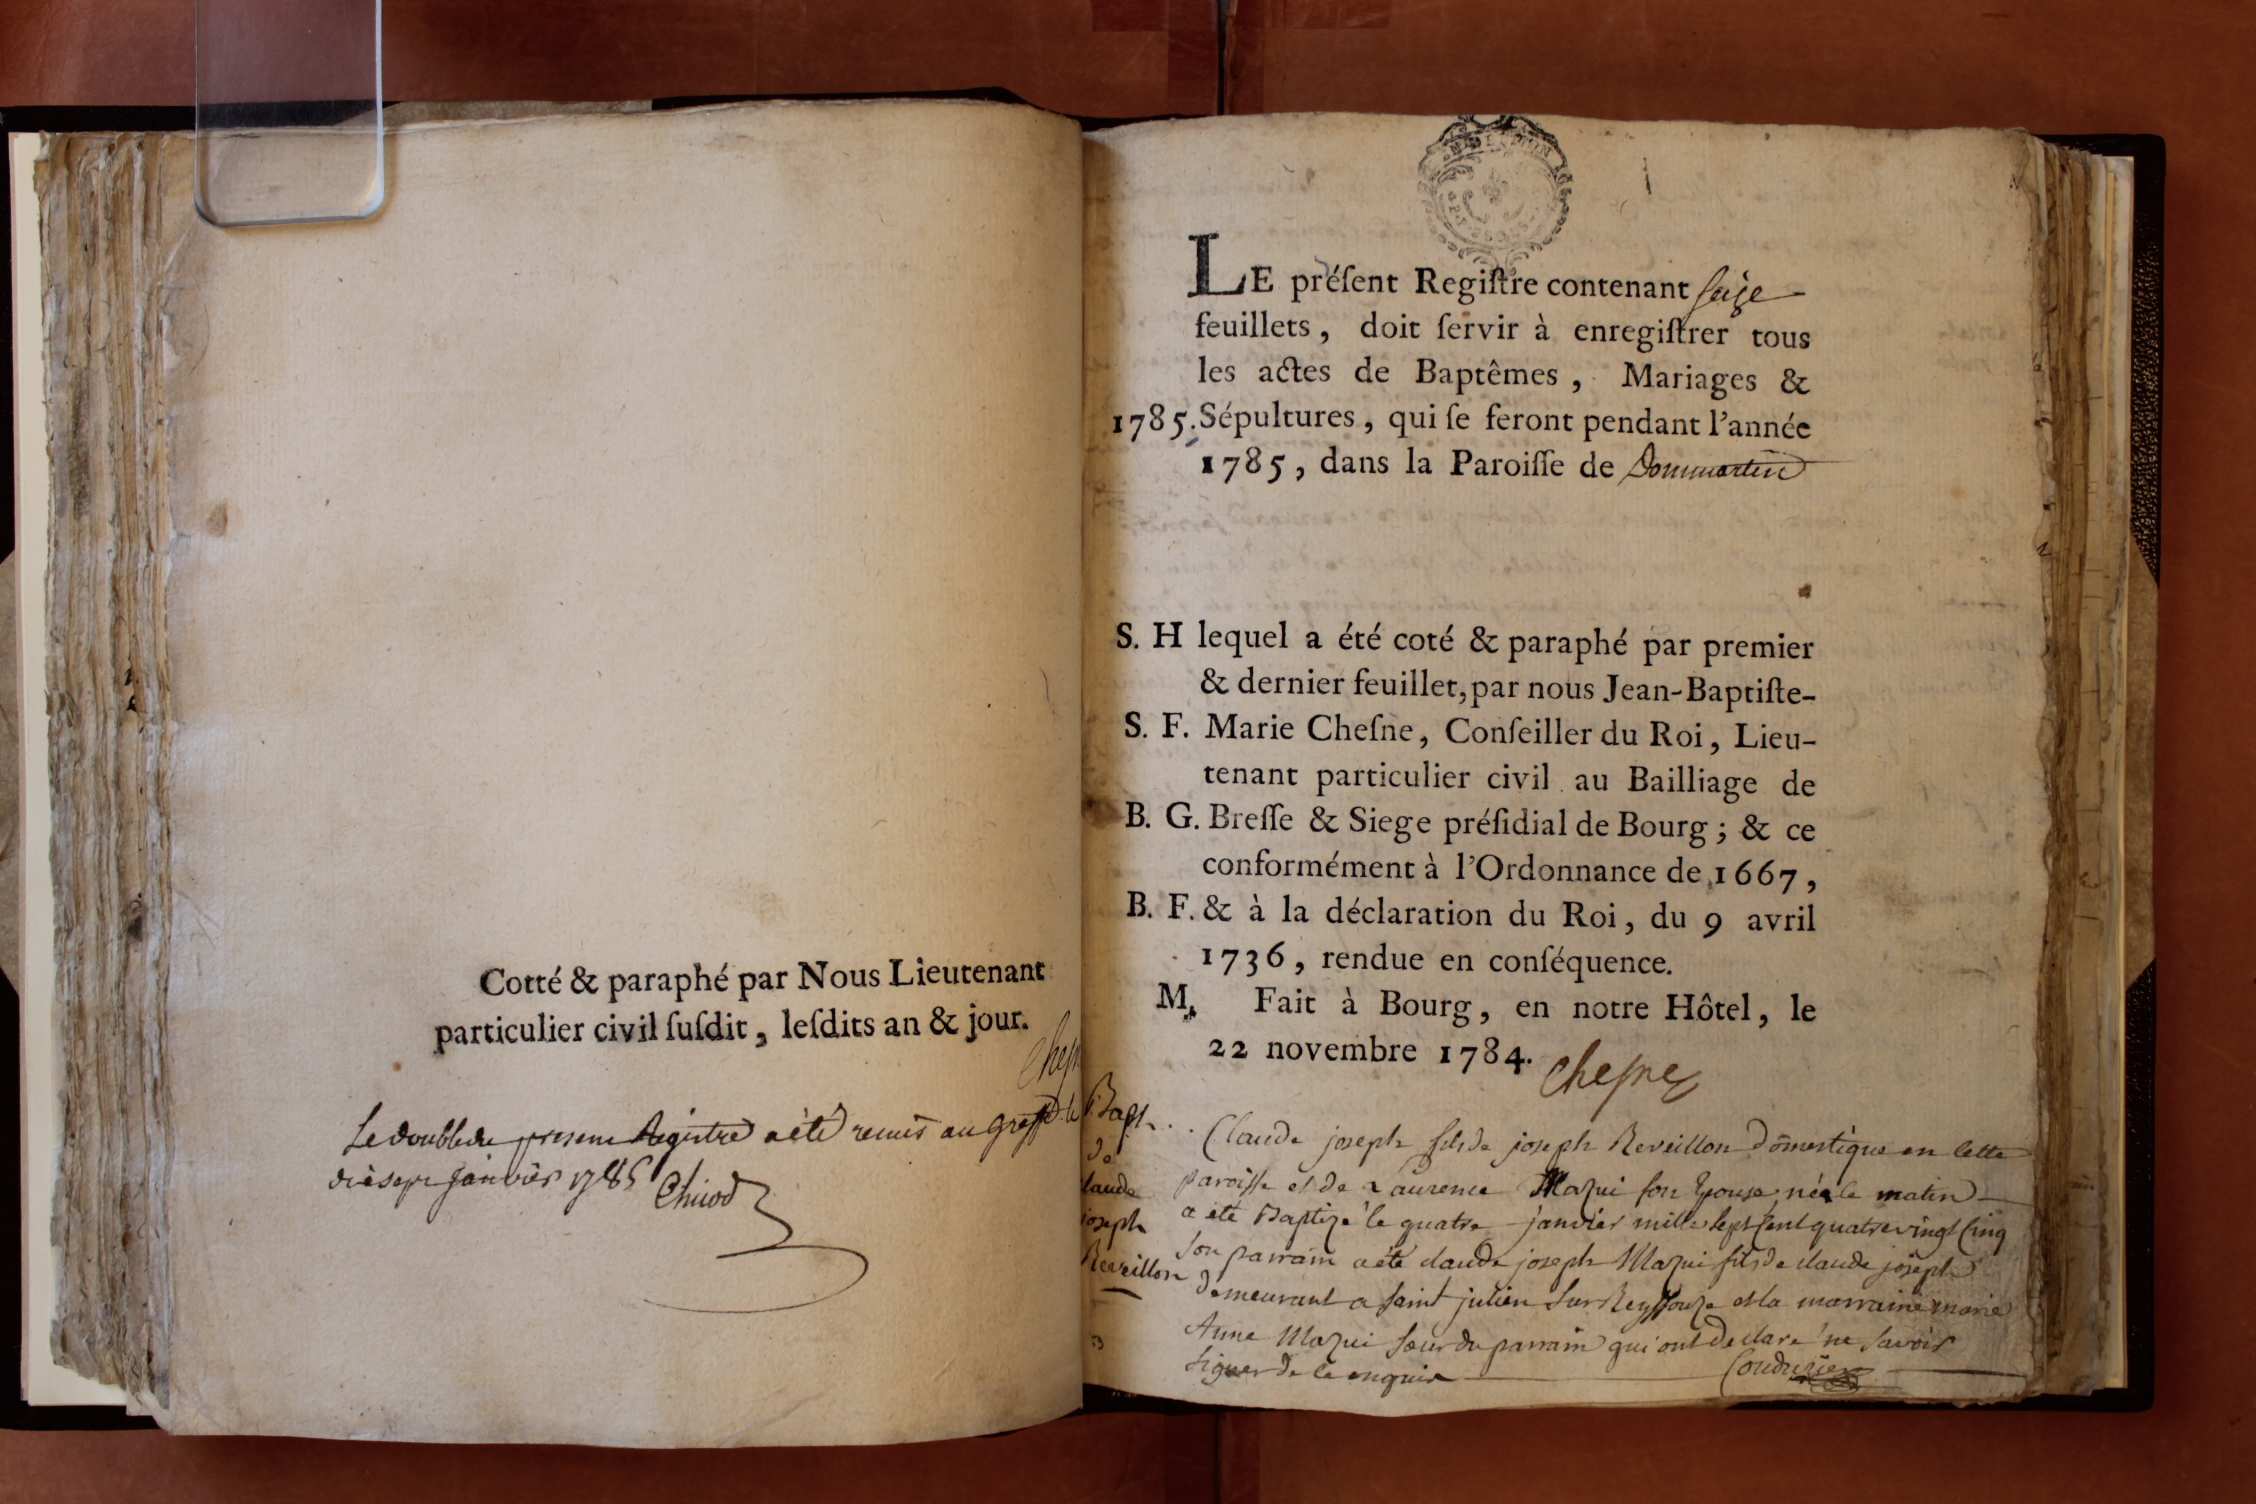 Cotté & paraphé par Nous Lieutenant
particulier civil ſuſdit, leſdits an & jour.
Chesn
Le double du present Registre a été remis au greffe le
dix sept janvier 1785
1
LE préſent Regiſtre contenant seize
feuillets, doit ſervir à enregiſtrer tous
les actes de Baptêmes, Mariages &
1785. Sépultures, qui ſe feront pendant l'année
1785, dans la Paroiſſe de Dommartin
S. H lequel a été coté & paraphé par premier
& dernier feuillet, par nous Jean-Baptiſte-
S. F. Marie Cheſne, Conſeiller du Roi, Lieu-
tenant particulier civil au Bailliage de
B. G. Breſſe & Siege préſidial de Bourg; & ce
conformément à l'Ordonnance de 1667,
B. F. & à la déclaration du Roi, du 9 avril
1736, rendue en conſéquence.
M. Fait à Bourg, en notre Hôtel, le
22 novembre 1784.
Chesne
Bapt.
de
claude
joseph
Reveillon
Claude joseph fils de joseph Reveillon domestique en cette
paroisse et de Laurence Mazui son Epouse née le matin
a été Baptizé le quatre janvier mille sept cent quatre vingt cinq
son parrain a été claude joseph Mazui fils de claude joseph
demeurant a saint julien sur Reyssouze et la marraine marie
Anne Mazui sœur du parrain qui ont declaré ne savoir
signer de ce enquis